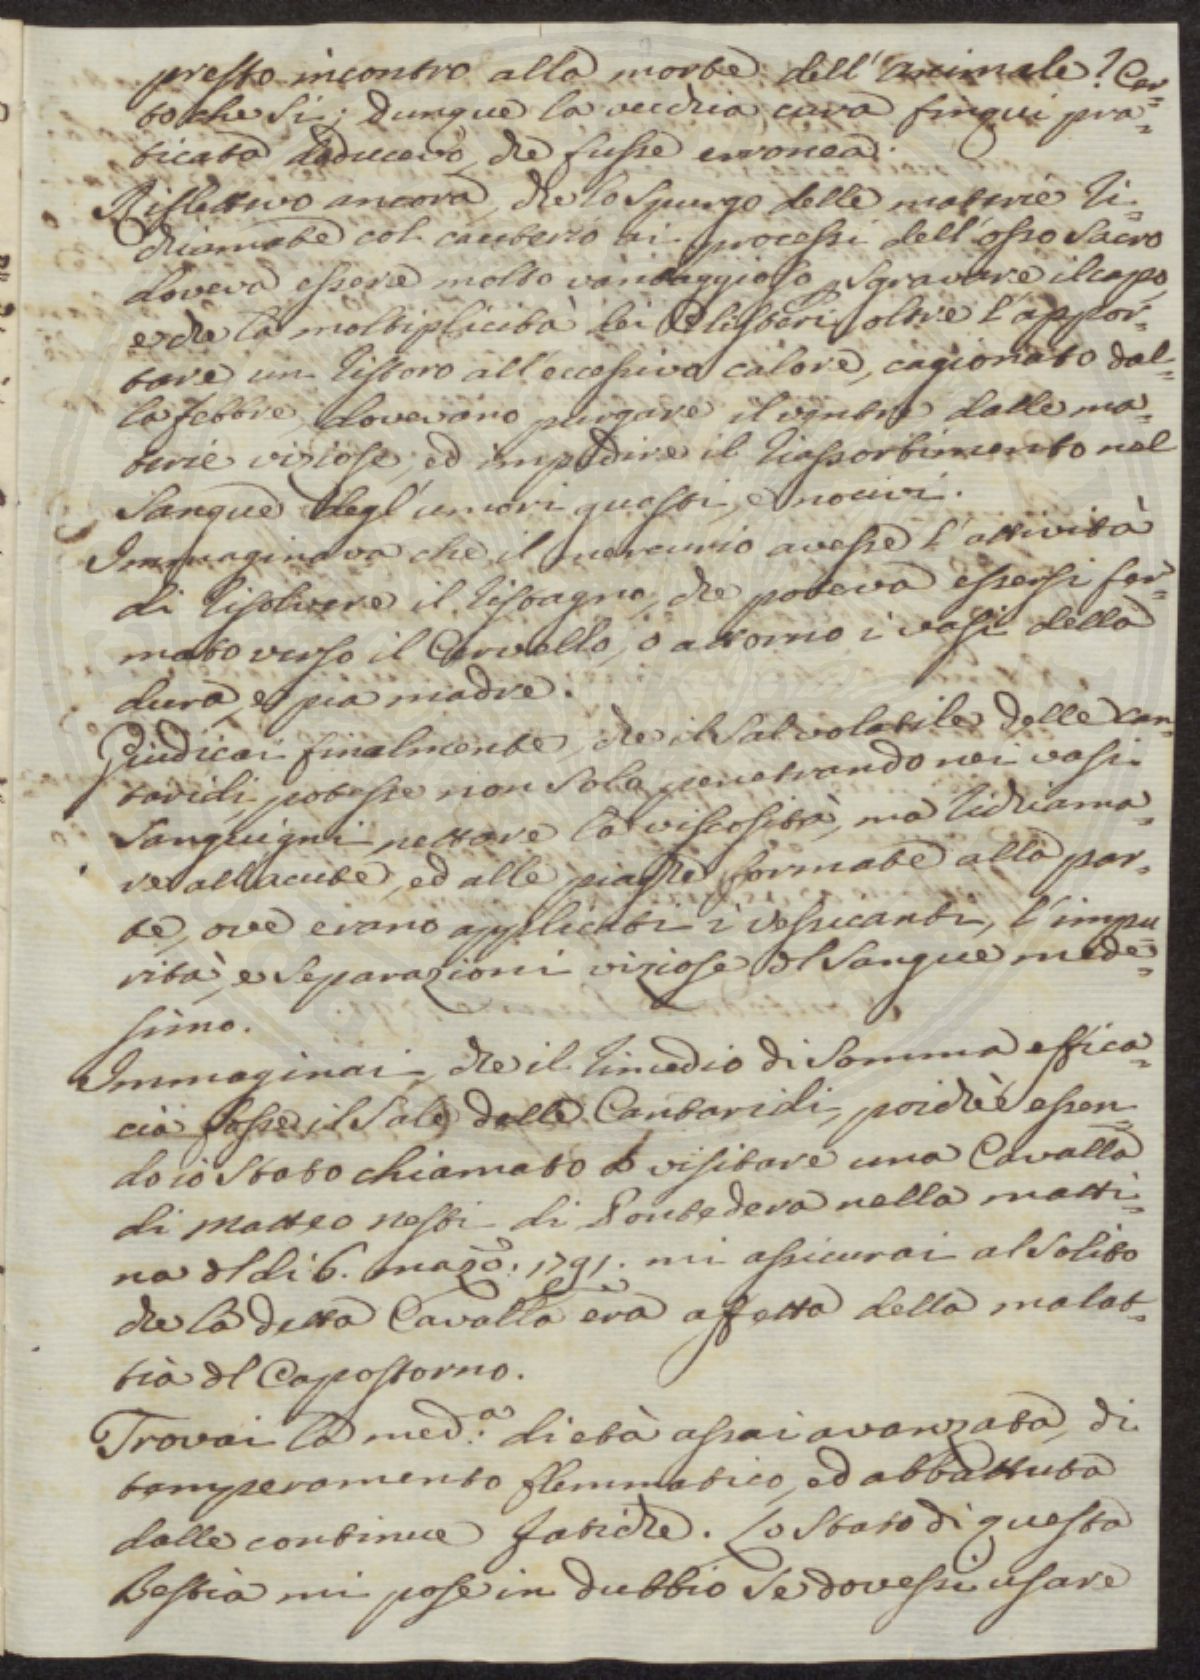 presto incontro alla morte dell'animale? Cer=
to che si; Dunque la vecchia cura finqui pra=
ticata deducevo, che fusse erronea.
Riflettevo ancora, che lo spurgo delle materie ri=
chiamate col cauterio ai processi dell'osso sacro
doveva essere molto vantaggioso, sgravare il capo,
e che la moltiplicità dei Clisteri, oltre l'appor=
tare un ristoro all'eccessivo calore, cagionato dal=
la febbre, dovevano purgare il ventre dalle ma=
terie viziose, ed impedire il riassorbimento nel
sangue degl'umori guasti, e nocivi.
Immaginava che il mercurio avesse l'attività
di risolvere il ristagno, che poteva essersi for=
mato verso il Cervello, o attorno i vasi della
dura, e pia madre.
Giudicai finalmente, che il Sal volatile delle can=
taridi, potesse non solo penetrando nei vasi
sanguigni nettare la viscosità, ma richiama=
re all'acute, ed alle piaghe formate alla par=
te, ove erano applicati i vessicanti, l'impu=
rità, e separazioni viziose del sangue mede=
simo.
Immaginai, che il rimedio di somma effica=
cia fosse il Sale delle Cantaridi, poichè essen=
do io stato chiamato a visitare una Cavalla
di Matteo Nesti di Pontedera nella matti=
na del dì 6. magō: 1791. mi assicurai al solito
che la detta Cavalla era affetta della malat=
tia del Capostorno.
Trovai la med.ª di età assai avanzata, di
temperamento flemmatico, ed abbattuta
dalle continue fatiche. Lo stato di questa
Bestia mi pose in dubbio se dovessi usare